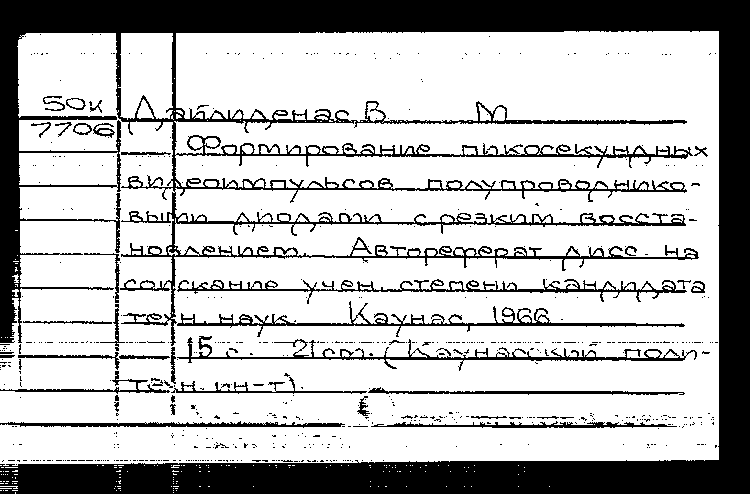 50к Дайлиденас, В М
7706
Формирование пикосекундных
видеоимпульсов полупроводнико-
выми диодами с резким восста-
новлением. Автореферат дисс. на
соискание учен. степени кандидата
техн. наук. Каунас, 1966.
15 с. 21 см. (Каунасский поли-
техн. ин-т).